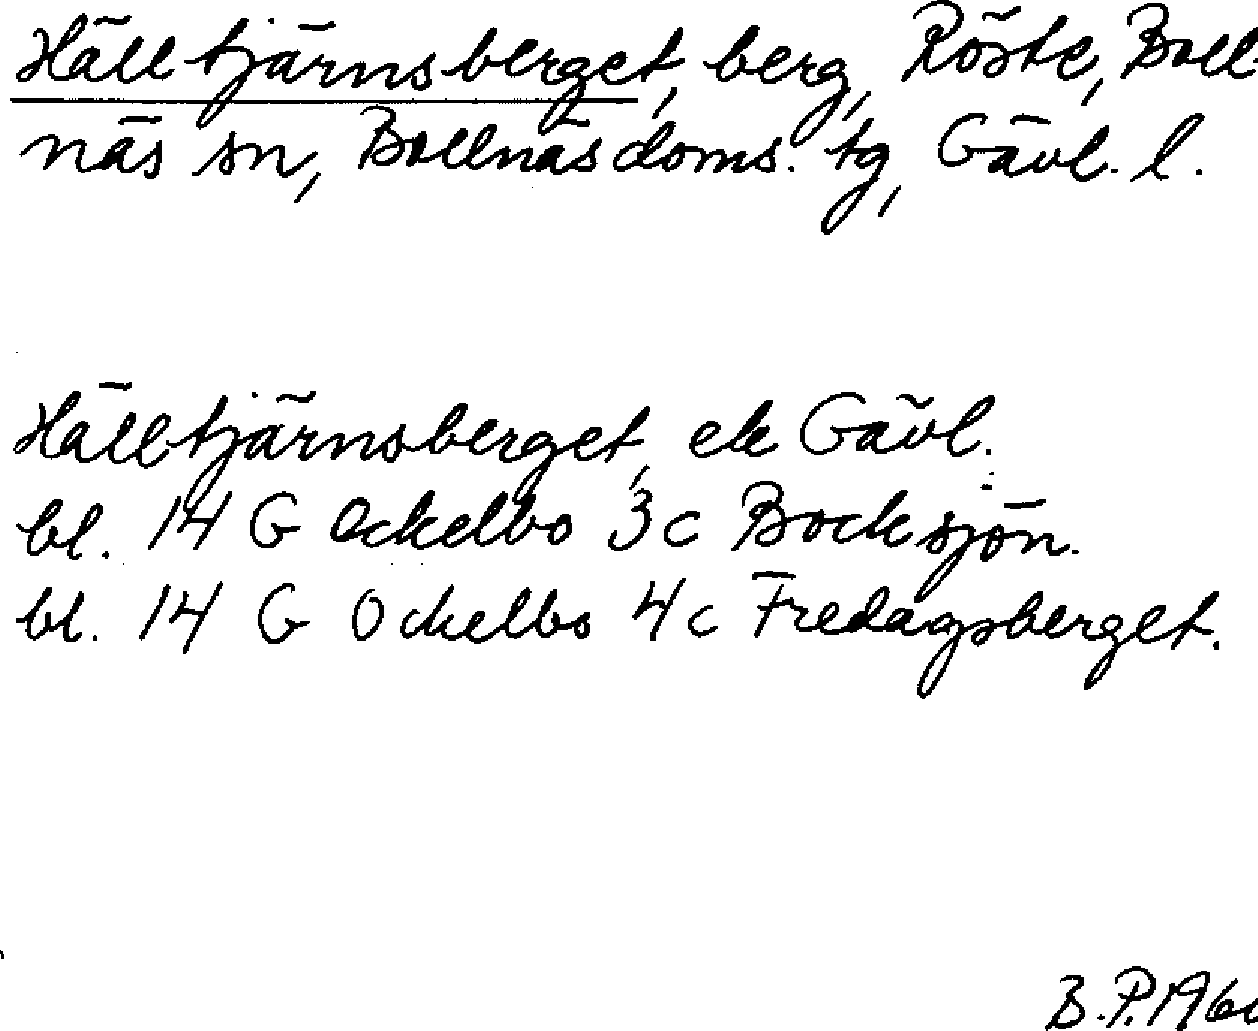 Hälltjärnsberget, berg, Röste, Boll-
näs sn, Bollnäs doms. tg, Gävl. l.
Hälltjärnsberget, ek Gävl.
bl. 14 G Ockelbo 3c Bocksjön.
bl. 14 G Ockelbo 4c Fredagsberget.
B.P.